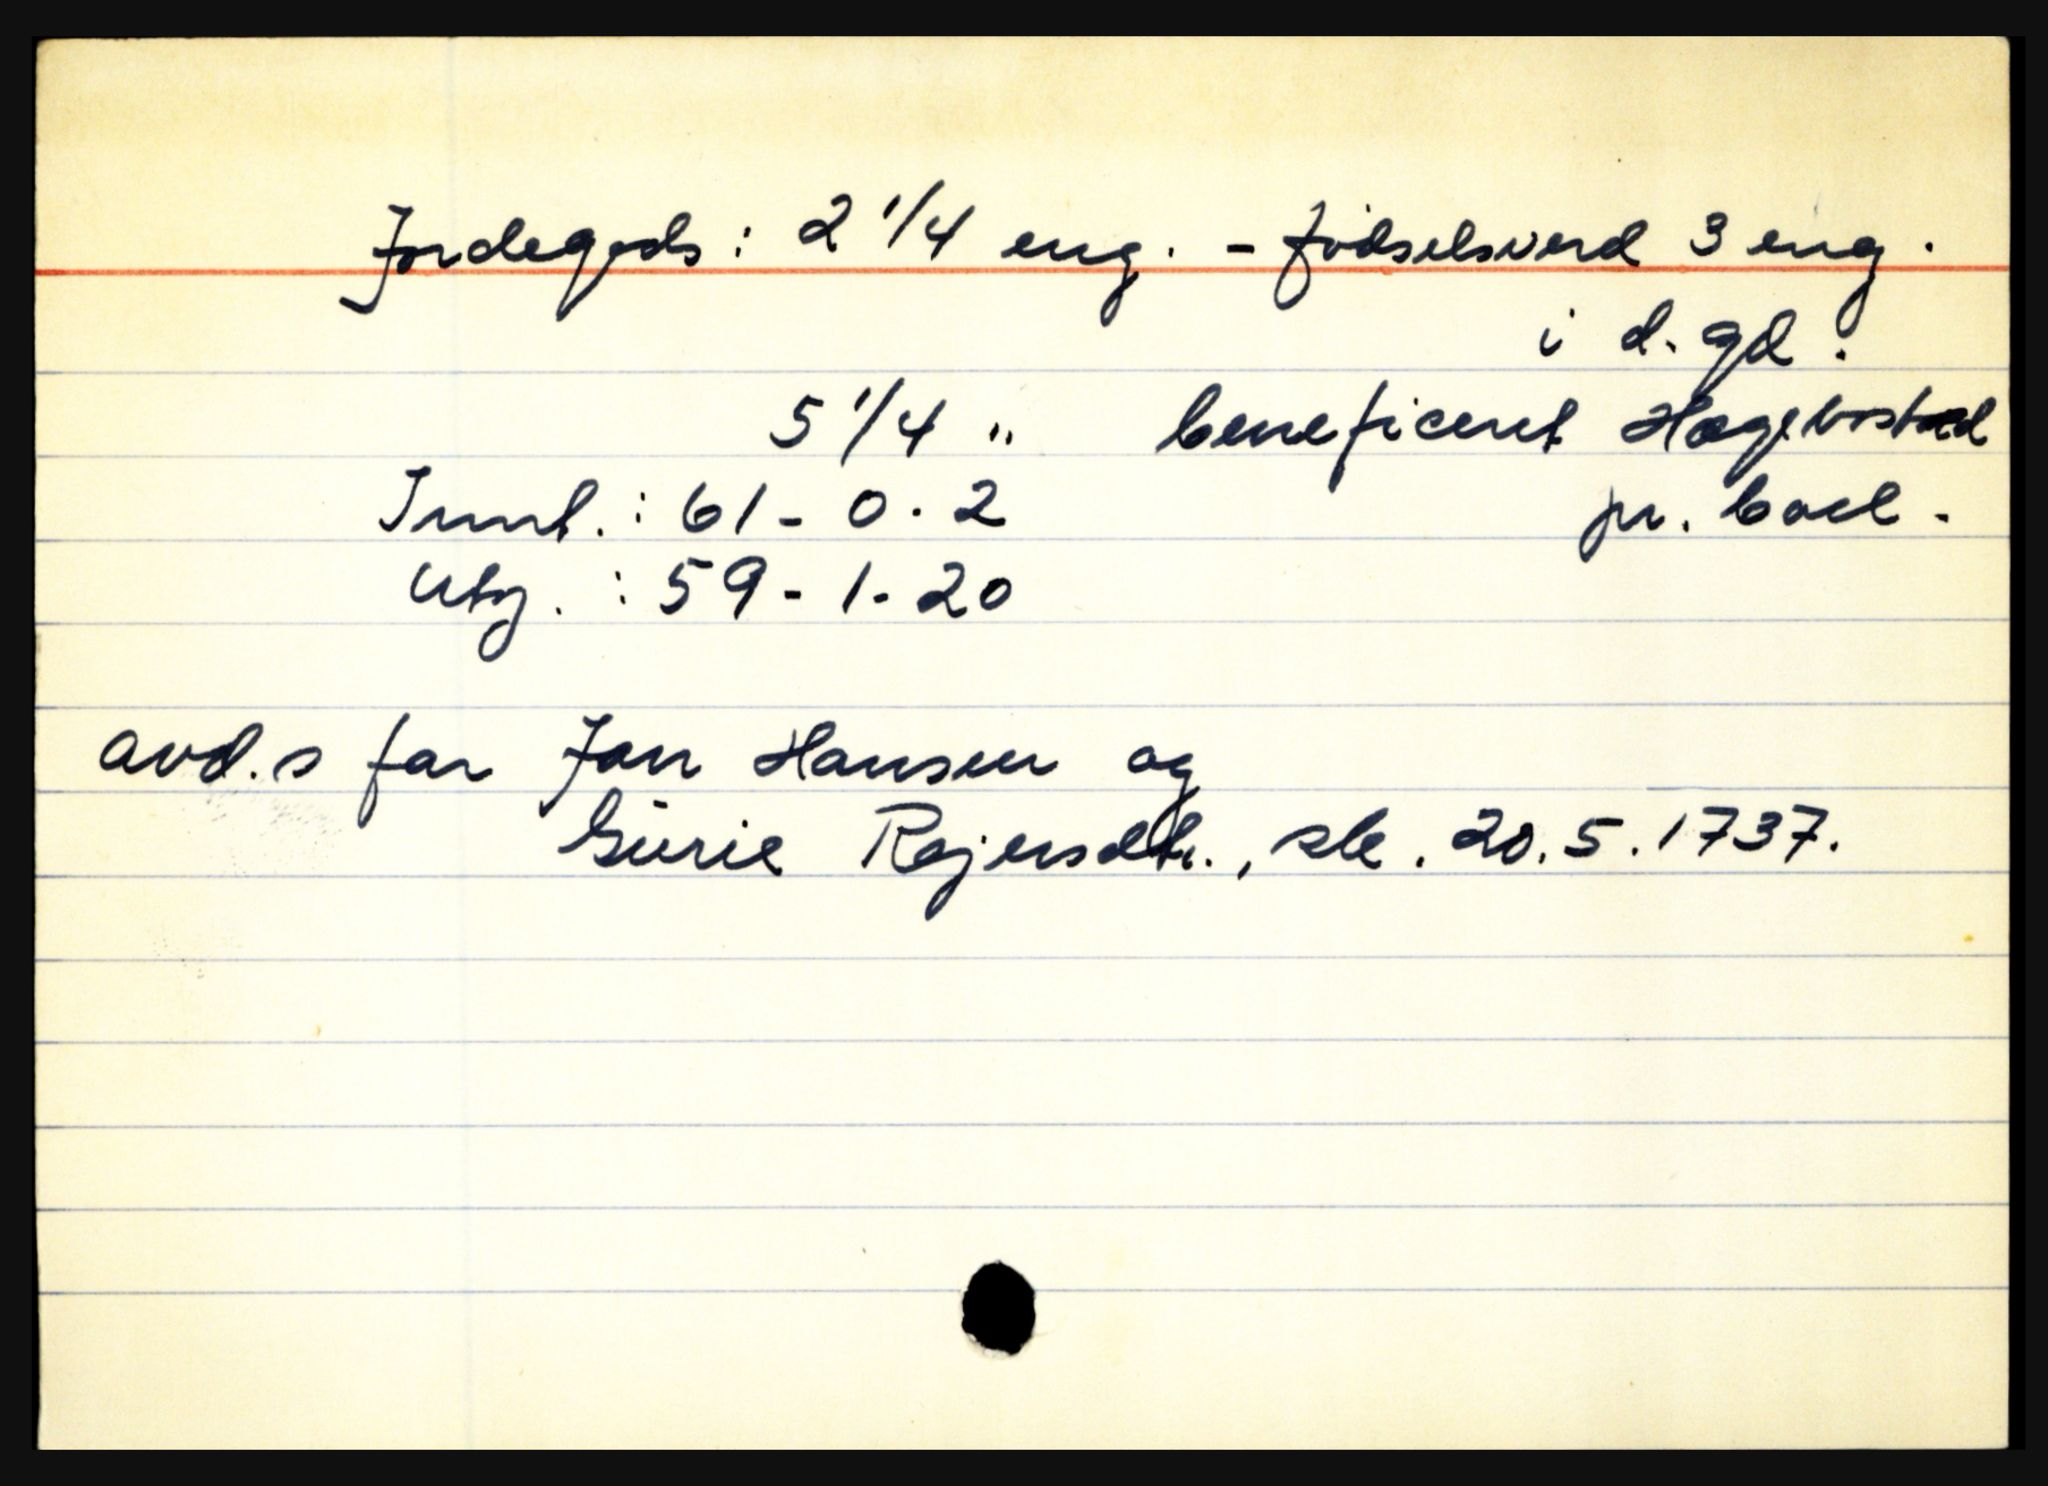 Jordegods: 2 1/4 eng. - fødselsverd 3 eng.
i d. gd.
5 1/4 " beneficeret Hægebostad
Innt.: 61 - 0 - 2 pr. boel.
Utg.: 59 - 1 - 20
avd.s far Jon Hansen og
Gurie Rejersdtr., sk. 20.5.1737.